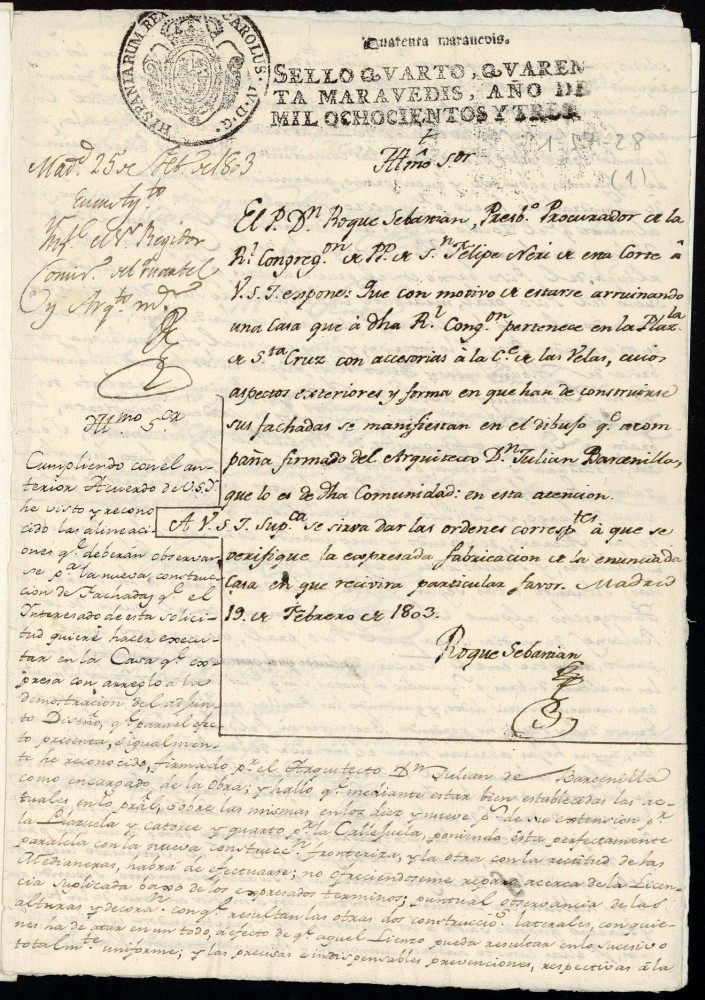 HISPANIARUM REX CAROLUS. IV. D. G.
Quarenta maravedis.
SELLO QVARTO, QVAREN-
TA MARAVEDIS, AÑO DE
MIL OCHOCIENTOS Y TRES.
1-47-28
(1)
Mad.d 25 de Feb.o de 1803
Ill.mo S.or
Inf.e el S.r Regidor
Comis.o del Quartel
y Arq.to m.r
El P. D.n Roque Sebastian, Presb.o Procurador de la
R.l Congreg.on de PP. de S.n Felipe Neri de esta Corte à
V. S. I. expone: Que con motivo de estarse arruinando
una Casa que à dha R.l Cong.on pertenece en la Plaz.la
de S.ta Cruz con accesorias à la C.e de las Velas, cuios
aspectos exteriores y forma en que han de construirse
sus fachadas se manifiestan en el dibujo q.e acom-
paña firmado del Arquitecto D.n Julian Barcenilla,
que lo es de dha Comunidad: en esta atencion.
A V. S. I. Sup.ca se sirva dar las ordenes corresp.tes à que se
verifique la expresada fabricacion de la enunciada
Casa en que recivira particular favor. Madrid
19. de Febrero de 1803.
Roque Sebastian
Ill.mo S.or
Cumpliendo con el an-
terior Acuerdo de V.S.I.
he visto y recono-
cido las alineaci-
ones q.e deberán observar-
se p.a la nueva construc-
ción de Fachadas q.e el
Interesado de esta solici-
tud quiere hacer execu-
tar en la Casa q.e ex-
presa con arreglo à la
demostracion del adjun-
to Diseño, q.e para el efec-
to presenta, è igualmen-
te he reconocido, firmado p.r el Arquitecto D.n Julian de Barcenilla
como encargado de la obra; y hallo q.e mediante estar bien establecidas las ac-
tuales, en lo pral, sobre las mismas en los diez y nueve p.s de su extension p.r
la Plazuela y catorce y quarto p.r la Callejuela, poniendo ésta perfectamente
paralela con la nueva construcc.n fronteriza, y la otra con la rectitud de las
Medianeras, habrá de efectuarse; no ofreciendoseme reparo acerca de la Licen-
cia suplicada baxo de los expresados terminos; puntual observancia de las
alturas y decora.n con q.e resultan las otras dos construcci.s laterales, con quie-
nes ha de atar en un todo, à efecto de q.e aquel Lienzo pueda resultar en lo sucesivo
total.m.te uniforme; y las precisas è indispensables prevenciones, respectivas à la